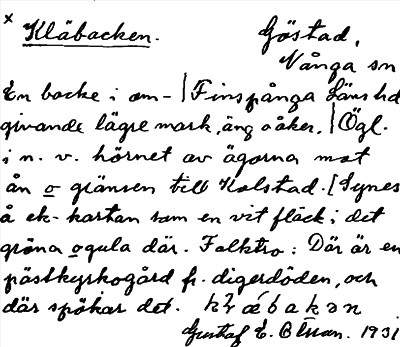 x Kläbacken. Göstad,
Vånga sn
En backe i om- | Finspånga läns hd
givande lägre mark, äng o åker. | Ögl.
i n. v. hörnet av ägorna mot
ån o gränsen till Kolstad. [Synes
å ek-kartan som en vit fläck i det
gröna o gula där. Folktro: Där är en
pästkyrkogård fr. digerdöden, och
där spökar det.
Gustaf E. 1931